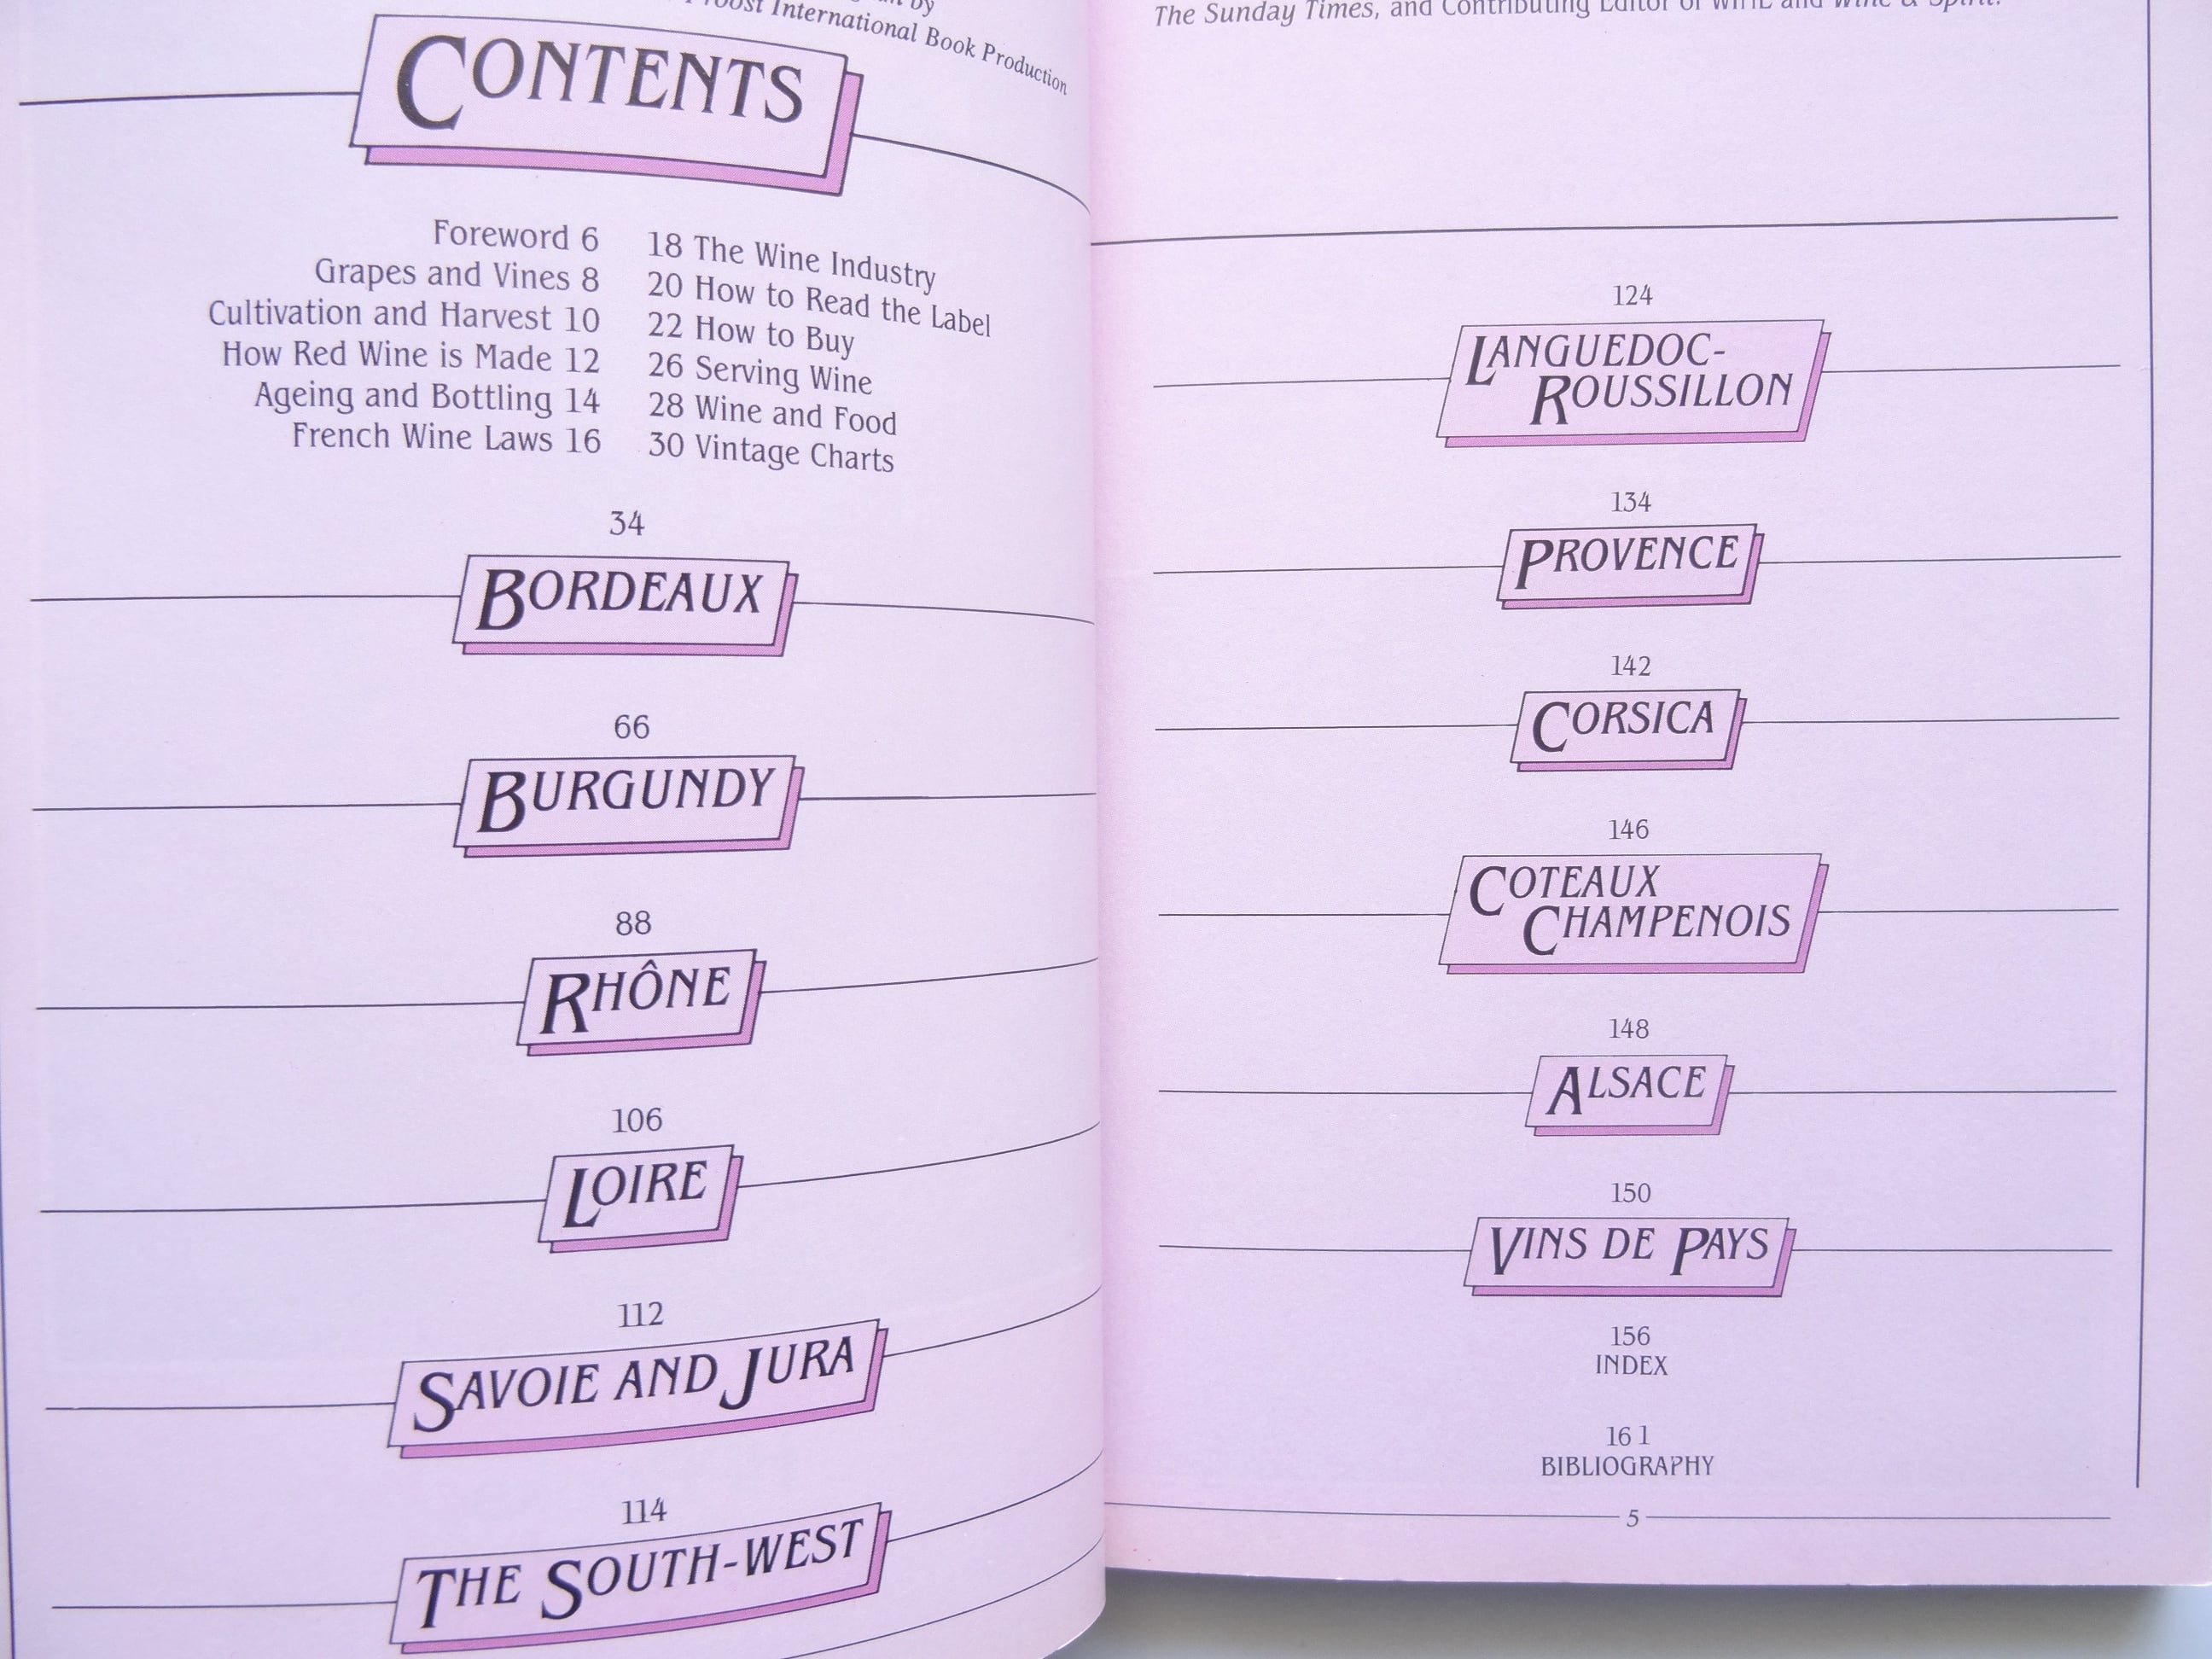 by
International Book Production
CONTENTS
Foreword 6
Grapes and Vines 8
Cultivation and Harvest 10
How Red Wine is Made 12
Ageing and Bottling 14
French Wine Laws 16
18 The Wine Industry
20 How to Read the Label
22 How to Buy
26 Serving Wine
28 Wine and Food
30 Vintage Charts
34
BORDEAUX
66
BURGUNDY
88
RHÔNE
106
LOIRE
112
SAVOIE AND JURA
114
THE SOUTH-WEST
The Sunday Times, and Contributing Editor of WINE and Wine & Spirit.
124
LANGUEDOC-
ROUSSILLON
134
PROVENCE
142
CORSICA
146
COTEAUX
CHAMPENOIS
148
ALSACE
150
VINS DE PAYS
156
INDEX
161
BIBLIOGRAPHY
5